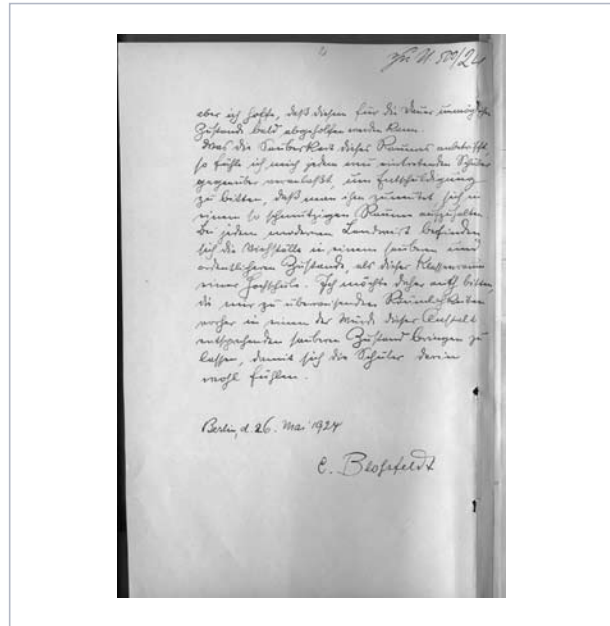 zu N. 500/24
aber ich hoffe, daß diesem für die Dauer unmöglichen
Zustande bald abgeholfen werden kann.
Was die Sauberkeit dieses Raumes anbetrifft
so fühle ich mich jedem neu eintretenden Schüler
gegenüber veranlaßt, um Entschuldigung
zu bitten, daß man ihm zumutet, sich in
einem so schmutzigen Raume aufzuhalten
Bei jedem modernen Landwirt befinden
sich die Viehställe in einem sauberen und
ordentlicheren Zustande, als dieser Klassenraum
einer Hochschule. Ich möchte daher bitten,
die mir zu überweisenden Räumlichkeiten
vorher in einen der Würde dieser Anstalt
entsprechenden sauberen Zustand bringen zu
lassen, damit sich die Schüler darin
wohl fühlen.
Berlin, d. 26. Mai 1924
C. Bloßfeldt